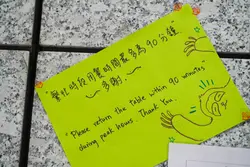 繁忙時段用餐時間最多為90分鐘
多謝。
"Please return the table within 90 minutes
during peak hours. Thank You.